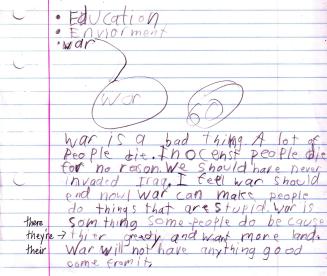 • Education
• Enviorment
• war
war
war is a bad thing A lot of
People die. Inocenst people die
for no roson. We should have never
invaded Iraq. I feel war should
end now! War can make people
do things that are stupid. War is
there somthing some people do be cause
they're → thier greedy and want more land.
their War will not have anything good
come from it.